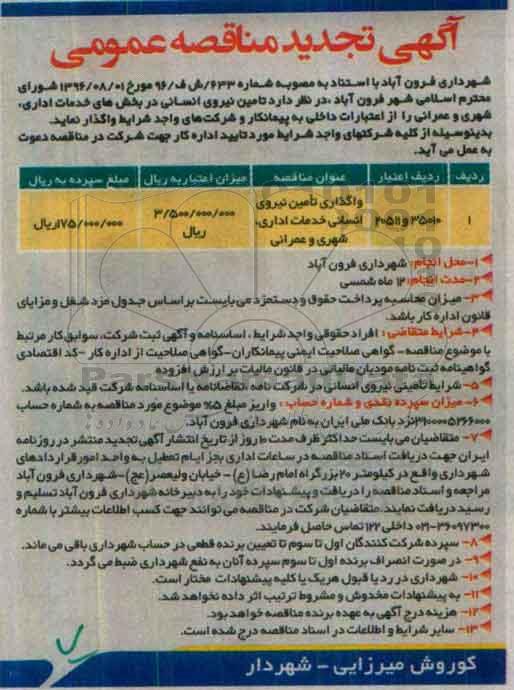 آگهی تجدید مناقصه عمومی
شهرداری فرون آباد با استناد به مصوبه شماره ۶۳۳/ش ف/۹۶ مورخ ۱۳۹۶/۰۸/۰۱ شورای
محترم اسلامی شهر فرون آباد ،در نظر دارد تامین نیروی انسانی در بخش های خدمات اداری،
شهری و عمرانی را از اعتبارات داخلی به پیمانکار و شرکت‌های واجد شرایط واگذار نماید.
بدینوسیله از کلیه شرکتهای واجد شرایط مورد تایید اداره کار جهت شرکت در مناقصه دعوت
به عمل می آید.
ردیف ردیف اعتبار عنوان مناقصه میزان اعتبار به ریال مبلغ سپرده به ریال
۱ ۳۵۰۱۰ و ۲۰۵۱۱ واگذاری تأمین نیروی انسانی خدمات اداری، شهری و عمرانی ۳/۵۰۰/۰۰۰/۰۰۰ ریال ۱۷۵/۰۰۰/۰۰۰ریال
۱-محل انجام: شهرداری فرون آباد
۲-مدت انجام: ۱۲ ماه شمسی
۳- میزان محاسبه پرداخت حقوق و دستمزد می بایست بر اساس جدول مزد شغل و مزایای
قانون اداره کار باشد.
۴-شرایط متقاضی : افراد حقوقی واجد شرایط ، اساسنامه و آگهی ثبت شرکت، سوابق کار مرتبط
با موضوع مناقصه- گواهی صلاحیت ایمنی پیمانکاران-گواهی صلاحیت از اداره کار -کد اقتصادی
گواهینامه ثبت نامه مودیان مالیاتی در قانون مالیات بر ارزش افزوده
۵- شرایط تأمینی نیروی انسانی در شرکت نامه ،تقاضانامه یا اساسنامه شرکت قید شده باشد.
۶- میزان سپرده نقدی و شماره حساب : واریز مبلغ ۵% موضوع مورد مناقصه به شماره حساب
نزد بانک ملی ایران به نام شهرداری فرون آباد.
۷- متقاضیان می بایست حداکثر ظرف مدت ۱۰ روز از تاریخ انتشار آگهی تجدید منتشر در روزنامه
ایران جهت دریافت اسناد مناقصه در ساعات اداری بجز ایام تعطیل به واحد امور قراردادهای
شهرداری واقع در کیلومتر ۲۰ بزرگراه امام رضا (ع) - خیابان ولیعصر(عج)-شهرداری فرون آباد
مراجعه و اسناد مناقصه را دریافت و پیشنهادات خود را به دبیرخانه شهرداری فرون آباد تسلیم و
رسید دریافت نمایند. متقاضیان شرکت در مناقصه می توانند جهت کسب اطلاعات بیشتر با شماره
۰۲۱-۳۶۰۹۷۳۰۰ داخلی ۱۲۲ تماس حاصل فرمایند.
۸- سپرده شرکت کنندگان اول تا سوم تا تعیین برنده قطعی در حساب شهرداری باقی می ماند.
۹- در صورت انصراف برنده اول تا سوم سپرده آنان به نفع شهرداری ضبط می گردد.
۱۰- شهرداری در رد یا قبول هریک یا کلیه پیشنهادات مختار است.
۱۱- به پیشنهادات مخدوش و مشروط ترتیب اثر داده نخواهد شد.
۱۲- هزینه درج آگهی به عهده برنده مناقصه خواهد بود.
۱۳- سایر شرایط و اطلاعات در اسناد مناقصه درج شده است.
کوروش میرزایی - شهردار